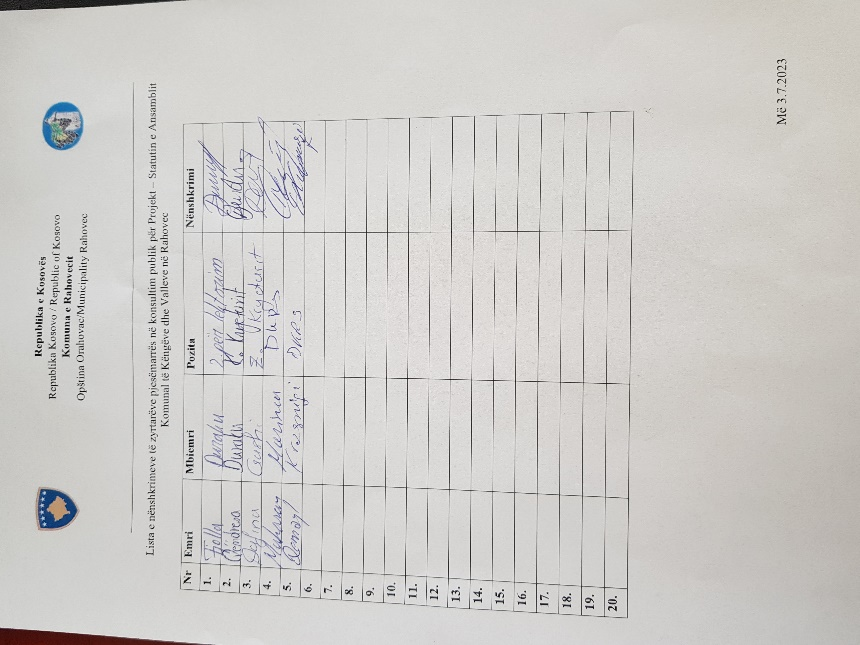 Republika e Kosovës
Republika Kosovo / Republic of Kosovo
Komuna e Rahovecit
Opština Orahovac/Municipality Rahovec
Lista e nënshkrimeve të zyrtarëve pjesëmarrës në konsultim publik për Projekt – Statutin e Ansamblit
Komunal të Këngëve dhe Valleve në Rahovec
Nr Emri Mbiemri Pozita Nënshkrimi
1. Fjolla Duraku
2. Duraku
3. Gashi Z.
4. DKRS
5. Krasniqi DKRS
6.
7.
8.
9.
10.
11.
12.
13.
14.
15.
16.
17.
18.
19.
20.
Më 3.7.2023